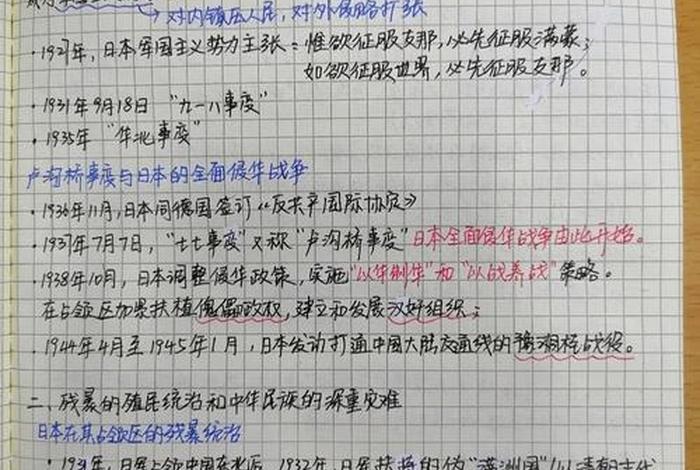 对内镇压人民，对外侵略扩张
·1927年，日本军国主义势力主张：惟欲征服支那，必先征服满蒙；
如欲征服世界，必先征服支那。
·1931年9月18日 “九一八事变”
·1935年 “华北事变”
卢沟桥事变与日本的全面侵华战争
·1936年11月，日本同德国签订《反共产国际协定》
·1937年7月7日，“七七事变”又称“卢沟桥事变” 日本全面侵华战争由此开始。
·1938年10月，日本调整侵华政策，实施“以华制华”和“以战养战”策略。
在占领区加紧扶植傀儡政权，建立和发展汉奸组织；
·1944年4月至1945年1月，日本发动打通中国大陆交通线的豫湘桂战役。
二、残暴的殖民统治和中华民族的深重灾难
日本在其占领区的残暴统治
·1931年，日军占领中国东北后，1932年，日军扶植的伪“满洲国”